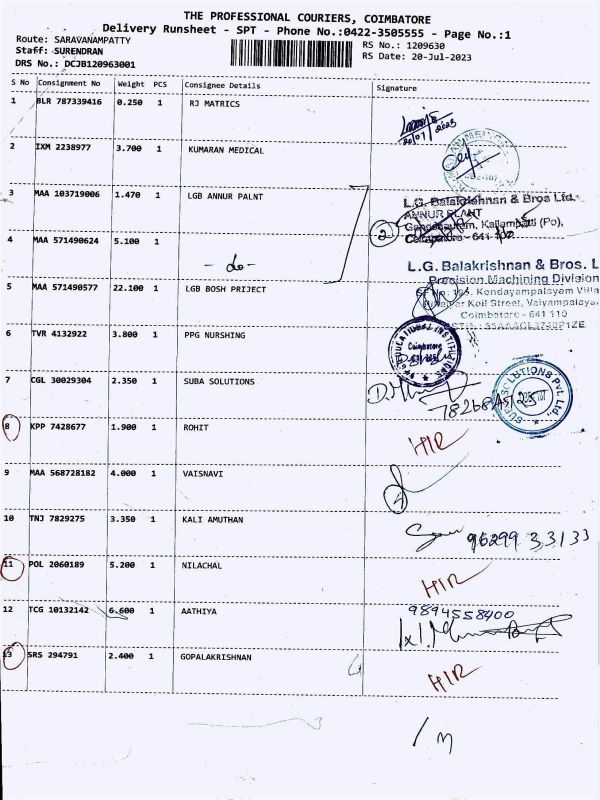 THE PROFESSIONAL COURIERS, COIMBATORE
Delivery Runsheet - SPT - Phone No.:0422-3505555 - Page No.:1
Route: SARAVANAMPATTY
RS No.: 1209630
Staff: SURENDRAN
RS Date: 20-Jul-2023
DRS No.: DCJB120963001
S No Consignment No Weight PCS Consignee Details Signature
1 BLR 787339416 0.250 1 RJ MATRICS
20/07/2023
2 IXM 2238977 3.700 1 KUMARAN MEDICAL
3 MAA 103719006 1.470 1 LGB ANNUR PALNT
L.G. Balakrishnan & Bros Ltd.
ANNUR PLANT
Kallampatti (Po),
Coimbatore - 641
2
4 MAA 571490624 5.100 1 - do -
5 MAA 571490577 22.100 1 LGB BOSH PRIJECT
L.G. Balakrishnan & Bros. L
Precision Machining Division
Kondayampalayam Villa
Koil Street, Vaiyampalaya
Coimbatore - 641 110
6 TVR 4132922 3.800 1 PPG NURSHING
EDUCATIONAL INSTITUTIONS
Coimbatore
7 CGL 30029304 2.350 1 SUBA SOLUTIONS
SOLUTIONS Pvt. Ltd.,
8 KPP 7428677 1.900 1 ROHIT
HIR
9 MAA 568728182 4.000 1 VAISNAVI
10 TNJ 7829275 3.350 1 KALI AMUTHAN
96299 33133
11 POL 2060189 5.200 1 NILACHAL
HIR
12 TCG 10132142 6.600 1 AATHIYA
9894558400
13 SRS 294791 2.400 1 GOPALAKRISHNAN
HIR